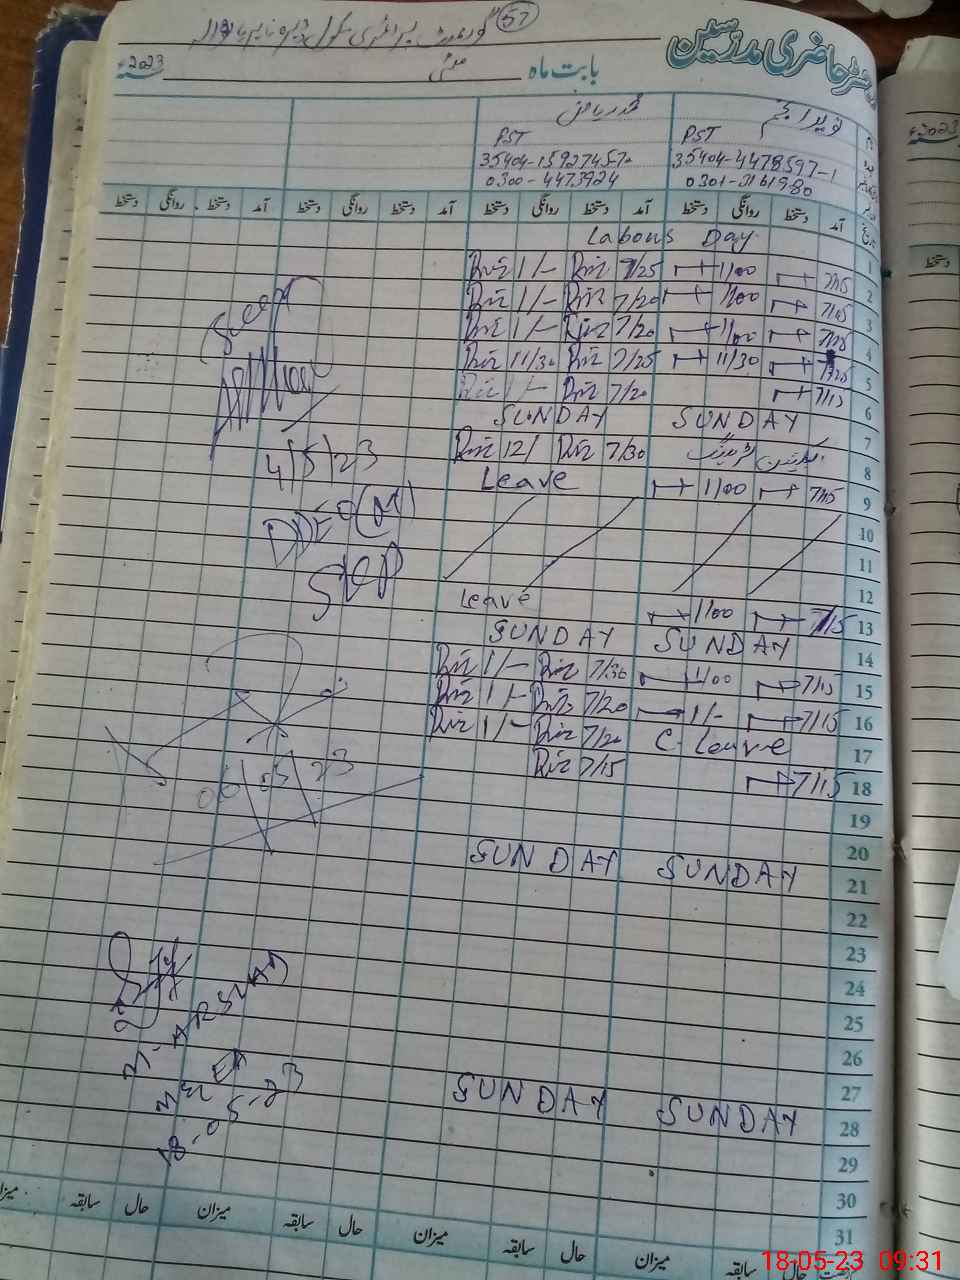 57
رجسٹر حاضری مدرسین
گورنمنٹ پرائمری سکول
بابت ماہ مئی 2023ء
نوید انجم محمد ریاض
PST PST
35404-4478597-1 35404-1592745-7
0301-3161980 0300-4473924
آمد دستخط روانگی دستخط آمد دستخط روانگی دستخط آمد دستخط روانگی دستخط آمد دستخط روانگی دستخط
1 Labours Day
2 7/15 1/00 7/25 Riz 1/- Riz
3 7/15 1/00 7/20 Riz 1/- Riz
4 7/15 1/00 7/20 Riz 1/- Riz
5 7/15 11/30 7/25 Riz 11/30 Riz
6 7/15 7/20 Riz 1/- Riz
7 SUNDAY SUNDAY
8 7/30 Riz 12/ Riz
9 7/15 1/00 Leave
10
11
12
13 7/15 1/00 Leave
14 SUNDAY SUNDAY
15 7/15 1/00 7/30 Riz 1/- Riz
16 7/15 1/- 7/20 Riz 1/- Riz
17 C. leave 7/20 Riz 1/- Riz
18 7/15 7/15 Riz
19
20
21 SUNDAY SUNDAY
22
23
24
25
26
27
28 SUNDAY SUNDAY
29
30
31
4/5/23
DDEO (M)
06/05/23
M-ARSHAD
MEA
18-05-23
حال سابقہ میزان حال سابقہ میزان حال سابقہ میزان حال سابقہ میزان
2023ء
دستخط
18-05-23 09:31